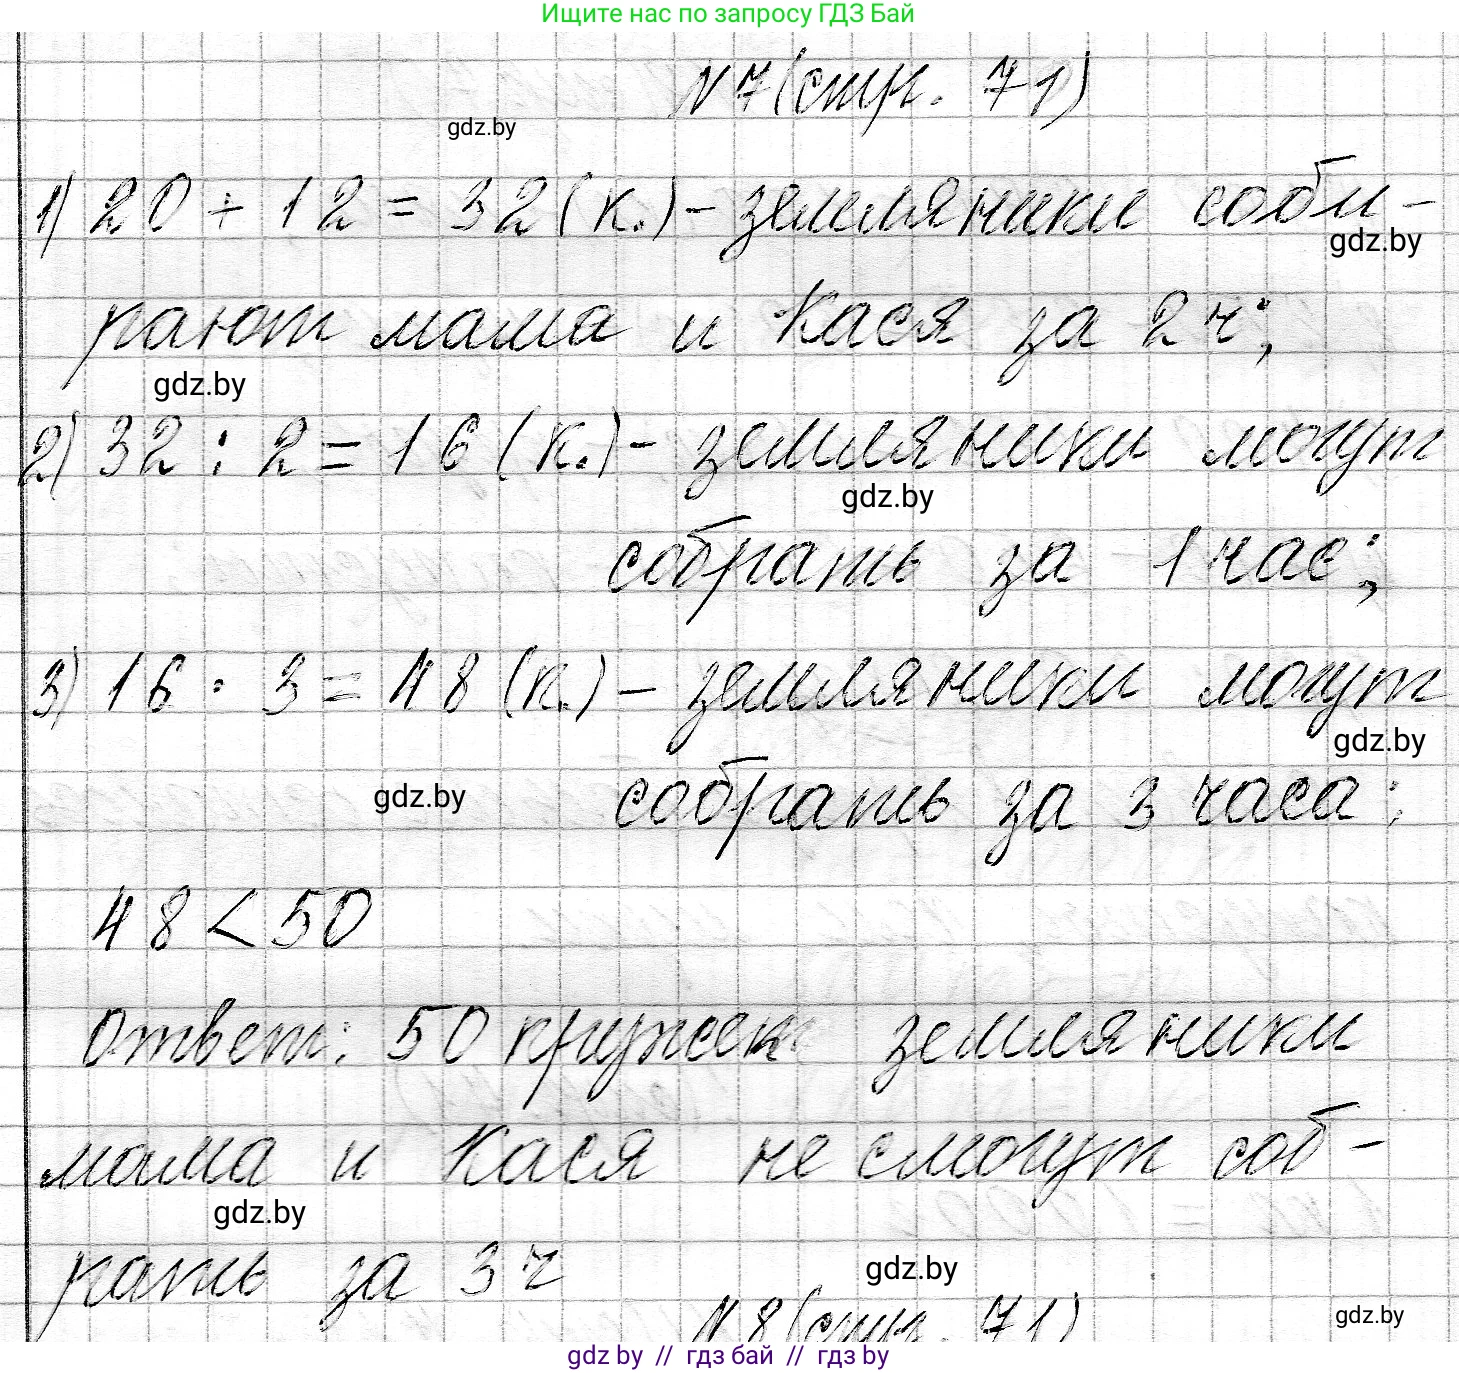 Ищите нас по запросу ГДЗ Бай
N 7 (стр. 71)
gdz.by
1) 20 + 12 = 32 (к.) - земляники соби-
gdz.by
рают мама и Кася за 2 ч;
gdz.by
2) 32 : 2 = 16 (к.) - земляники могут
gdz.by
собрать за 1 час;
3) 16 · 3 = 48 (к.) - земляники могут
gdz.by
собрать за 3 часа;
gdz.by
48 < 50
Ответ: 50 кружек земляники
мама и Кася не смогут соб-
gdz.by
рать за 3 ч
gdz.by
N 8 (стр. 71)
gdz.by
gdz by // гдз бай // гдз by